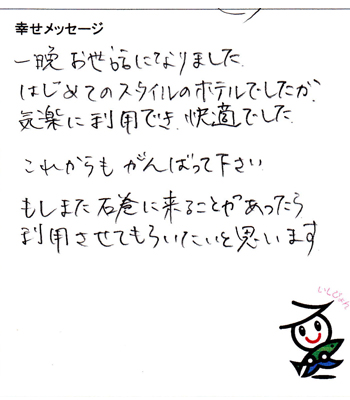 幸せメッセージ
一晩 お世話になりました
はじめてのスタイルのホテルでしたが、
気楽に利用でき、快適でした
これからも がんばって下さい
もしまた 石巻に来ることがあったら
利用させてもらいたいと思います
いしぴょん